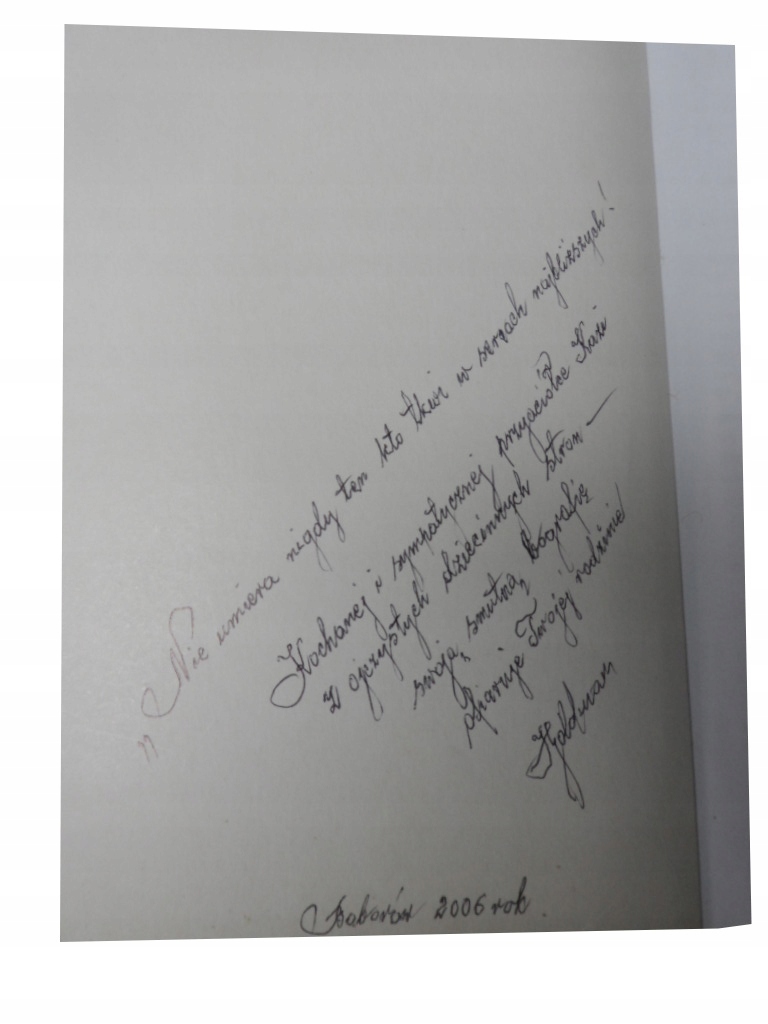 „Nie umiera nigdy ten kto tkwi w sercach najbliższych!
Kochanej i sympatycznej przyjaciółce Kazi
z ojczystych dziecinnych stron —
swoją smutną Biografię
ofiaruje Twojej rodzinie
Baborów 2006 rok.